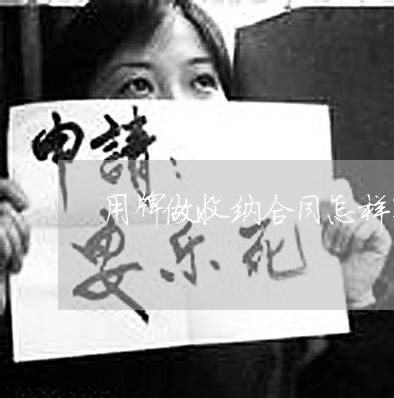 申請：
用做收纳合同怎样
安乐死